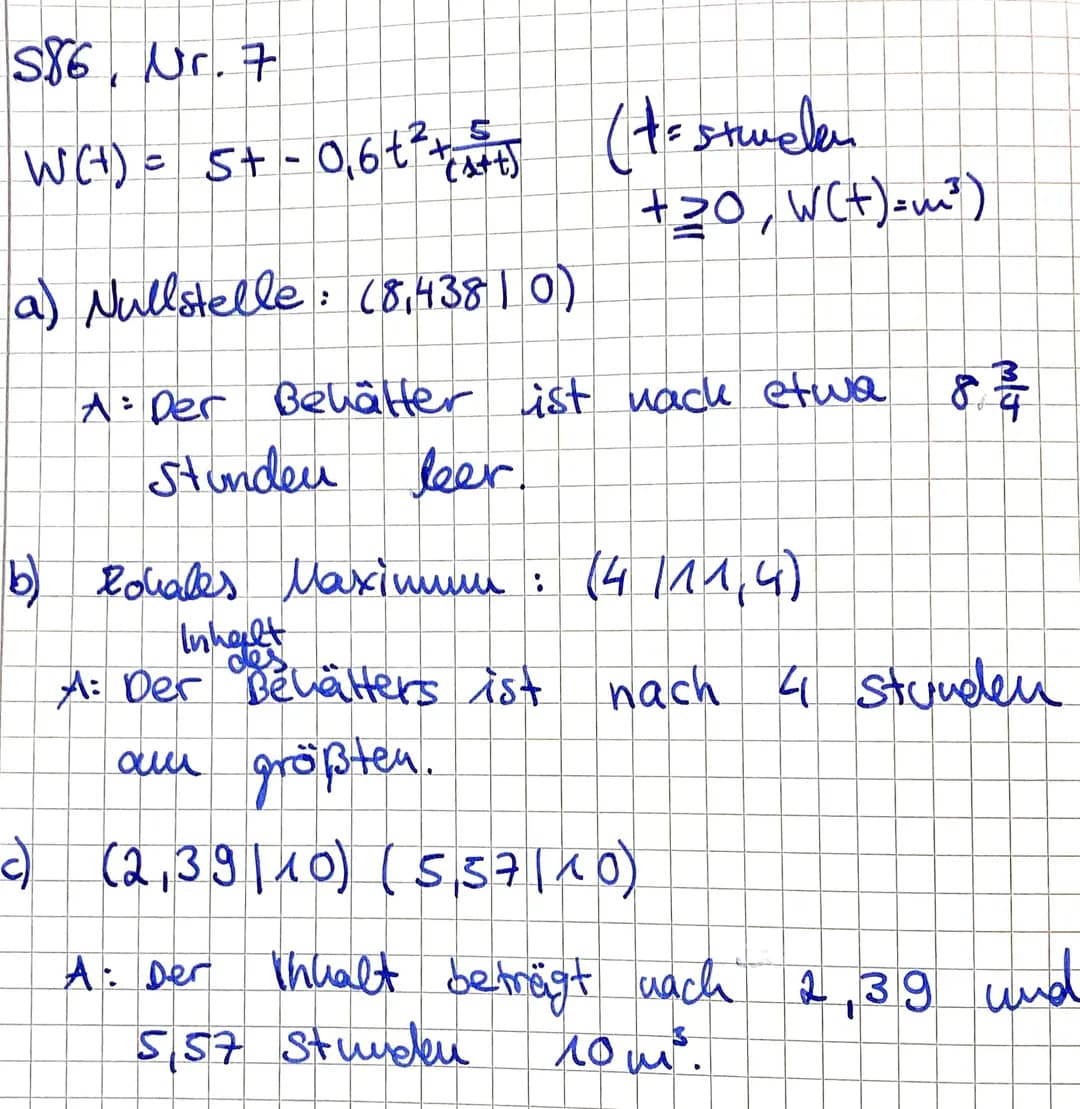 S86, Nr. 7
W(t) = 5t - 0,6t² + 5/(1+t) (t = stunden
t ≥ 0, W(t) = m³)
a) Nullstelle: (8,438 | 0)
A: Der Behälter ist nach etwa 8 3/4
Stunden leer.
b) Lokales Maximum: (4 | 11,4)
Inhalt
des
A: Der Behälters ist nach 4 stunden
am größten.
c) (2,39 | 10) (5,57 | 10)
A: Der Inhalt beträgt nach 2,39 und
5,57 Stunden 10 m³.